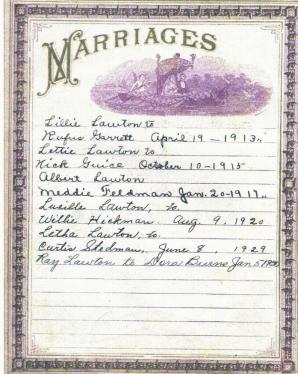 MARRIAGES
Lillie Lawton to
Rufus Garrett April 19-1913.
Lettie Lawton to
Nick Guice October 10-1915
Albert Lawton
Meddie Feldman Jan. 20-1917.
Lucille Lawton, to.
Willie Hickman. Aug. 9, 1920
Letha Lawton, to.
Curtis Stedman, June 8. 1929
Ray Lawton to Dora Burns Jan 5